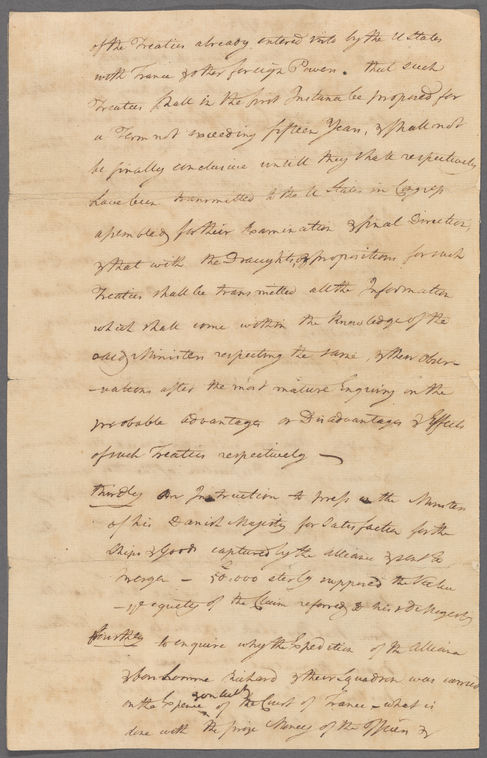 of the Treaties already entered into by the U States
with France & other foreign Powers. that such
Treaties shall in the first Instance be proposed for
a Term not exceeding fifteen Years, & shall not
be finally conclusive untill they shall respectively
have been transmitted to the U States in Congress
assembled for their Examination & final Direction,
& that with the Draughts or propositions for such
Treaties shall be transmitted all the Information
which shall come within the Knowledge of the
said Ministers respecting the same, & their obser-
-vations after the most mature Enquiry on the
probable advantages or Disadvantages & Effects
of such Treaties respectively —
Thirdly An Instruction to press the Minister
of his Danish Majesty for Satisfaction for the
Ships & Goods captured by the Alliance & sent to
Bergen — 50.000 sterlg supposed the Value
— equity of the Claim referred to his D Majesty
fourthly to enquire why the Expedition of the Alliance
& bon homme Richard & their Squadron was carried
conduct
on the Expence of the Court of France — what is
done with the prize Money of the Officers &